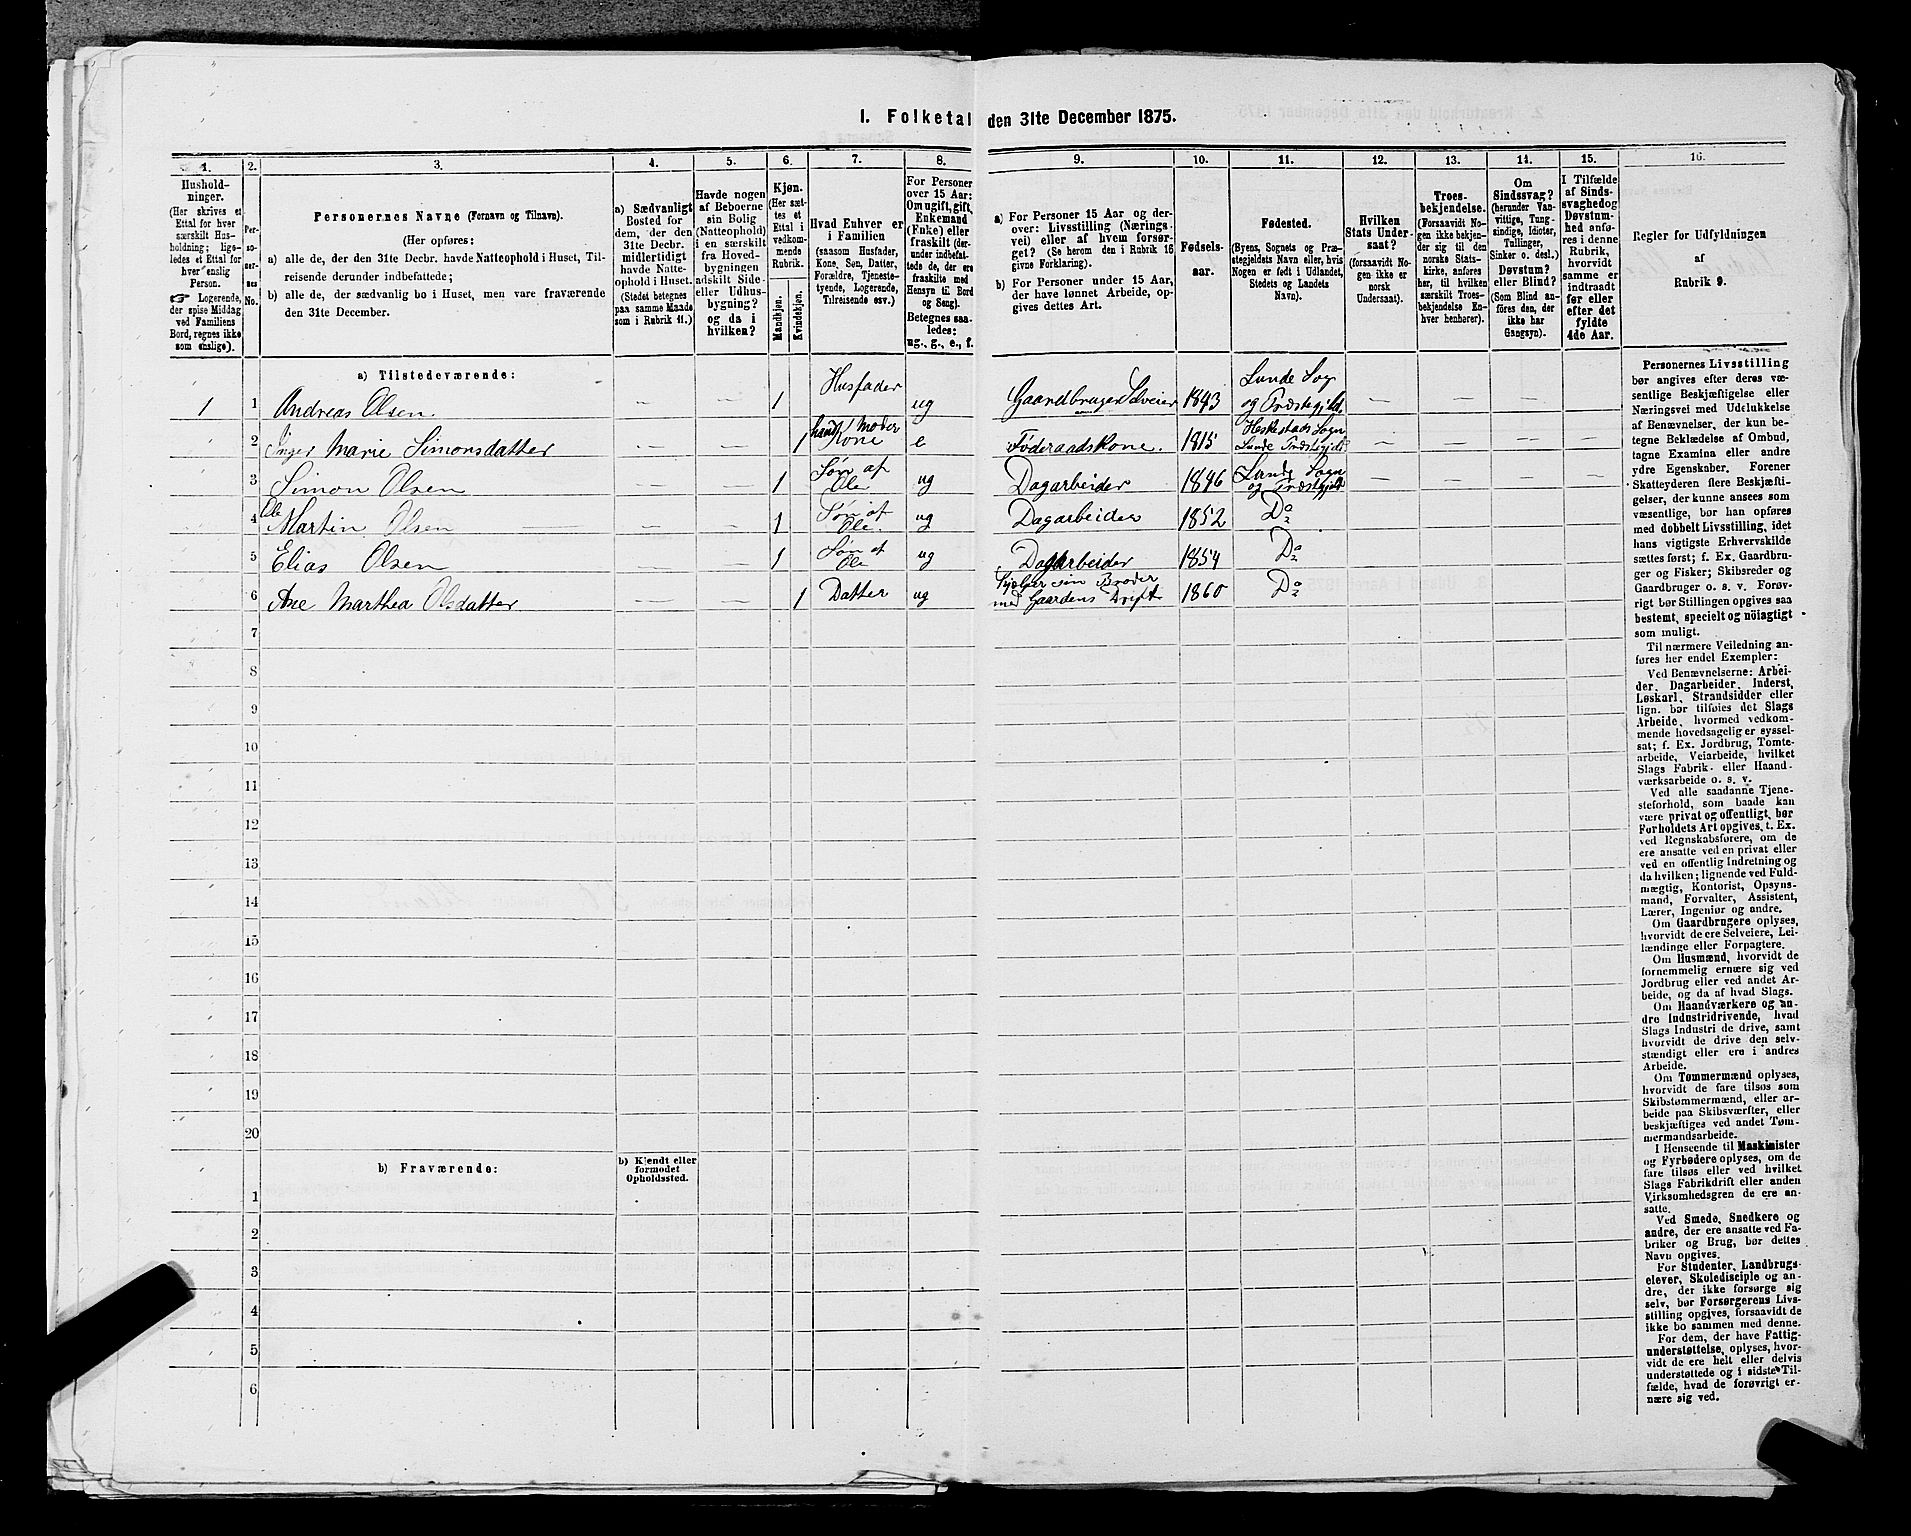 I. Folketal den 31te December 1875.
1.
Hushold-
ninger.
(Her skrives et
Ettal for hver
særskilt Hus-
holdning; lige-
ledes et Ettal for
hver enslig
Person.
☞ Logerende,
der spise Middag
ved Familiens
Bord, regnes ikke
som enslige).
2.
Per-
so-
ner-
nes
No.
3.
Personernes Navne (Fornavn og Tilnavn).
(Her opføres:
a) alle de, der den 31te Decbr. havde Natteophold i Huset, Til-
reisende derunder indbefattede;
b) alle de, der sædvanlig bo i Huset, men vare fraværende
den 31te December.
4.
a) Sædvanligt
Bosted for
dem, der den
31te Decbr.
midlertidigt
havde Natte-
ophold i Huset.
(Stedet betegnes
paa samme Maade
som i Rubrik 11.)
5.
Havde nogen
af Beboerne
sin Bolig
(Natteophold)
i en særskilt
fra Hoved-
bygningen
adskilt Side-
eller Udhus-
bygning?
og da i
hvilken?
6.
Kjøn.
(Her sæt-
tes et
Ettal i
vedkom-
mende
Rubrik.
Mandkjøn.
Kvindekjøn.
7.
Hvad Enhver er
i Familien
(saasom Husfader,
Kone, Søn, Datter,
Forældre, Tjeneste-
tyende, Logerende,
Tilreisende osv.)
8.
For Personer
over 15 Aar:
Om ugift, gift,
Enkemand
(Enke) eller
fraskilt (der-
under indbefat-
tede de, der ere
fraskilte med
Hensyn til Bord
og Seng).
Betegnes saa-
ledes:
ug., g., e., f.
9.
a) For Personer 15 Aar og der-
over: Livsstilling (Nærings-
vei) eller af hvem forsør-
get? (Se herom den i Rubrik 16
givne Forklaring).
b) For Personer under 15 Aar,
der have lønnet Arbeide, op-
gives dettes Art.
10.
Fødsels-
aar.
11.
Fødested.
(Byens, Sognets og Præ-
stegjeldets Navn eller, hvis
Nogen er født i Udlandet,
Stedets og Landets
Navn).
12.
Hvilken
Stats Under-
saat?
(forsaavidt No-
gen ikke er
norsk
Undersaat).
13.
Troes-
bekjendelse.
(Forsaavidt No-
gen ikke bekjen-
der sig til den
norske Stats-
kirke, anføres
her, til hvilken
særskilt Troes-
bekjendelse En-
hver henhører).
14.
Om
Sindssvag?
(herunder Van-
vittige, Tung-
sindige, Idioter,
Tullinger,
Sinker o. desl.)
Døvstum?
eller Blind?
(Som Blind an-
føres den, der
ikke har
Gangsyn).
15.
I Tilfælde
af Sinds-
svaghed og
Døvstum-
hed anfø-
res i denne
Rubrik,
hvorvidt
samme er
indtraadt
før eller
efter det
fyldte
4de Aar.
16.
Regler for Udfyldningen
af
Rubrik 9.
a) Tilstedeværende:
1 1 Andreas Olsen. — — 1 Husfader ug Gaardbruger Selveier 1843 Lunde Sog og Præstegjeld. — — — —
2 Inger Marie Simonsdatter — — 1 hans Moder Kone e Føderaadskone. 1815 Heskestads Sogn Lunde Præstegjeld — — — —
3 Simon Olsen — — 1 Søn af Ole ug Dagarbeider 1846 Lunde Sogn og Præstegjeld — — — —
4 Ole Martin Olsen — — 1 Søn af Ole. ug Dagarbeider 1852 Do
5 Elias Olsen — — 1 Søn af Ole ug Dagarbeider 1854 Do
6 Ane Marthea Olsdatter — — 1 Datter ug Hjelper sin Broder med Gaardens Drift 1860 Do
7
8
9
10
11
12
13
14
15
16
17
18
19
20
b) Fraværende:
b) Kjendt eller
formodet
Opholdssted.
1
2
3
4
5
6
Personernes Livsstilling
bør angives efter deres væ-
sentlige Beskjæftigelse eller
Næringsvei med Udelukkelse
af Benævnelser, der kun be-
tegne Beklædelse af Ombud,
tagne Examina eller andre
ydre Egenskaber. Forener
Skatteyderen flere Beskjæfti-
gelser, der kunne ansees som
væsentlige, bør han opføres
med dobbelt Livsstilling, idet
hans vigtigste Erhvervskilde
sættes først; f. Ex. Gaardbru-
ger og Fisker; Skibsreder og
Gaardbruger o. s. v. Forøv-
rigt bør Stillingen opgives saa
bestemt, specielt og nöiagtigt
som muligt.
Til nærmere Veiledning an-
føres her endel Exempler:
Ved Benævnelserne: Arbei-
der, Dagarbeider, Inderst,
Løskarl, Strandsidder eller
lign. bør tilføies det Slags
Arbeide, hvormed vedkom-
mende hovedsagelig er syssel-
sat; f. Ex. Jordbrug, Tomte-
arbeide, Veiarbeide, hvilket
Slags Fabrik- eller Haand-
værksarbeide o. s. v.
Ved alle saadanne Tjene-
steforhold, som baade kan
være privat og offentligt, bør
Forholdets Art opgives, t. Ex.
ved Regnskabsførere, om de
ere ansatte ved en privat eller
ved en offentlig Indretning og
da hvilken; lignende ved Fuld-
mægtig, Kontorist, Opsyns-
mand, Forvalter, Assistent,
Lærer, Ingeniør og andre.
Om Gaardbrugere oplyses,
hvorvidt de ere Selveiere, Lei-
lændinge eller Forpagtere.
Om Husmænd, hvorvidt de
fornemmelig ernære sig ved
Jordbrug eller ved andet Ar-
beide, og da af hvad Slags.
Om Haandværkere og an-
dre Industridrivende, hvad
Slags Industri de drive, samt
hvorvidt de drive den selv-
stændigt eller ere i andres
Arbeide.
Om Tømmermænd oplyses,
hvorvidt de fare tilsøs som
Skibstømmermænd, eller ar-
beide paa Skibsværfter, eller
beskjæftiges ved andet Tøm-
mermandsarbeide.
I Henseende til Maskinister
og Fyrbødere oplyses, om de
fare tilsøs eller ved hvilket
Slags Fabrikdrift eller anden
Virksomhedsgren de ere an-
satte.
Ved Smede, Snedkere og
andre, der ere ansatte ved Fa-
briker og Brug, bør dettes
Navn opgives.
For Studenter, Landbrugs-
elever, Skoledisciple og an-
dre, der ikke forsørge sig
selv, bør Forsørgerens Livs-
stilling opgives, forsaavidt de
ikke bo sammen med denne.
For dem, der have Fattig-
understøttelse, oplyses, hvor-
vidt de ere helt eller delvis
understøttede og i sidste Til-
fælde, hvad de forøvrigt er-
nære sig ved.